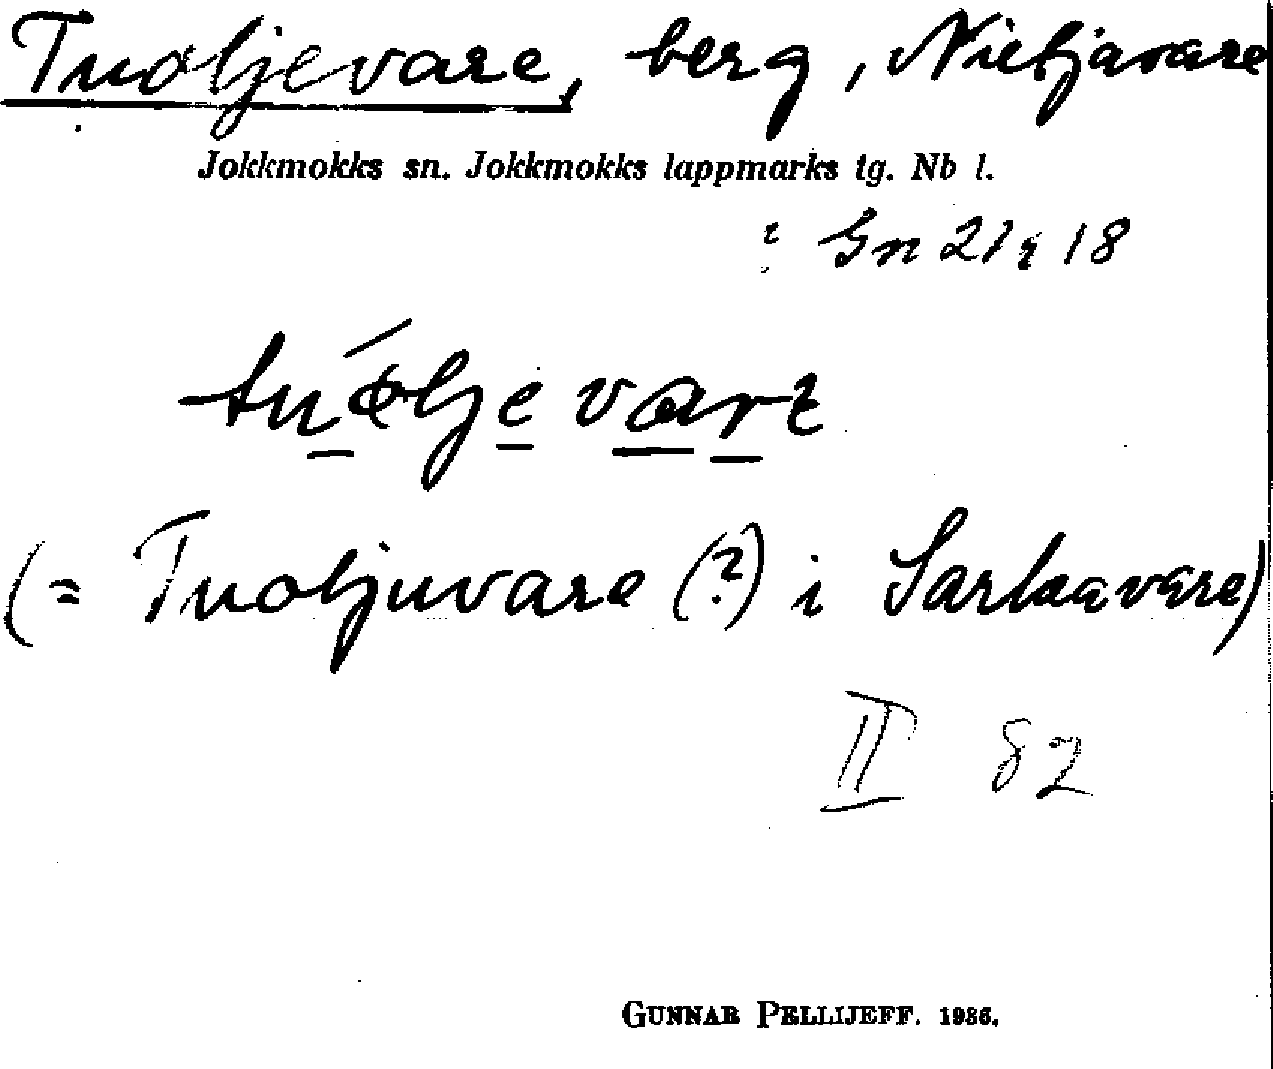 Tuoljevare, berg, Nietjavare
Jokkmokks sn. Jokkmokks lappmarks tg. Nb l.
: Gn 21 q 18
tuóljevarɛ
(= Tuoljuvare (?) i Sarkavare)
II 82
GUNNAR PELLIJEFF. 1936.